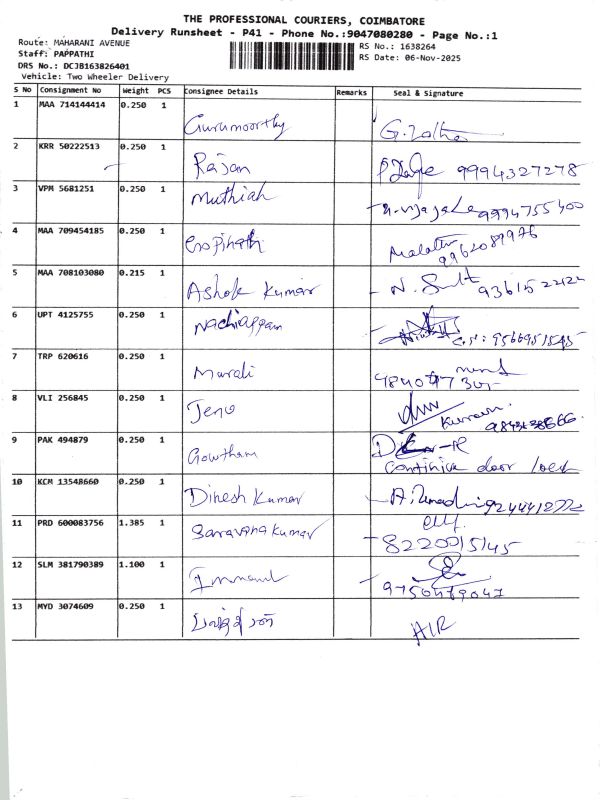 THE PROFESSIONAL COURIERS, COIMBATORE
Delivery Runsheet - P41 - Phone No.:9047080280 - Page No.:1
Route: MAHARANI AVENUE
Staff: PAPPATHI
DRS No.: DCJB163826401
Vehicle: Two Wheeler Delivery
RS No.: 1638264
RS Date: 06-Nov-2025
S No Consignment No Weight PCS Consignee Details Remarks Seal & Signature
1 MAA 714144414 0.250 1 Gurumoorthy
2 KRR 50222513 0.250 1 Rajan 9994327278
3 VPM 5681251 0.250 1 Muthiah 9994755400
4 MAA 709454185 0.250 1 Gopinath Malathi 9962089976
5 MAA 708103080 0.215 1 Ashok Kumar
6 UPT 4125755 0.250 1 Nachiappan
7 TRP 620616 0.250 1 Murali
8 VLI 256845 0.250 1 Jeno
9 PAK 494879 0.250 1 Gowtham door lock
10 KCM 13548660 0.250 1 Dinesh Kumar
11 PRD 600083756 1.385 1 Saravana Kumar 8220015145
12 SLM 381790389 1.100 1 9750479047
13 MYD 3074609 0.250 1